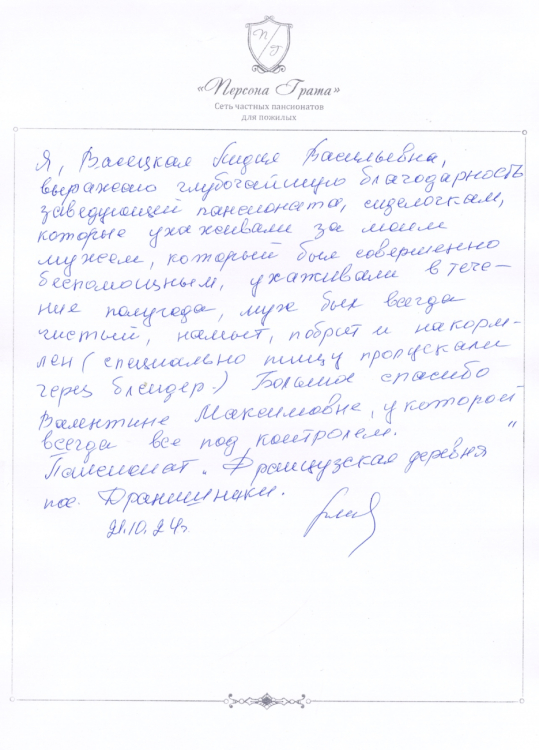 П Г
«Персона Грата»
Сеть частных пансионатов
для пожилых
Я, Васецкая Лидия Васильевна,
выражаю глубочайшую благодарность
заведующей пансионата, сиделочкам,
которые ухаживали за моим
мужем, который был совершенно
беспомощным, ухаживали в тече-
ние полугода, муж был всегда
чистый, намыт, побрит и накорм-
лен (специально пищу пропускали
через блендер.) Большое спасибо
Валентине Максимовне, у которой
всегда все под контролем.
Пансионат „Французская деревня"
пос. Дранишники.
21.10.24г.